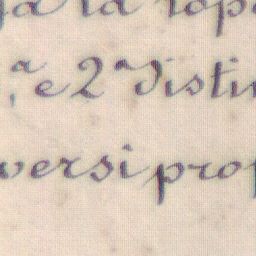 ja la sopa
,ª e 2ª Distin
versi prop